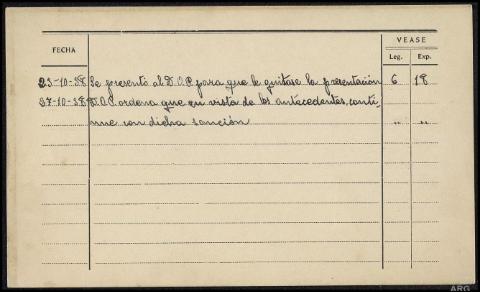 VEASE
FECHA
Leg. Exp.
23-10-38 Se presentó al D.O.P. para que le quitase la presentación 6 18
27-10-38 D.O.P. ordena que en vista de los antecedentes, conti-
nue con dicha sanción " "
ARG